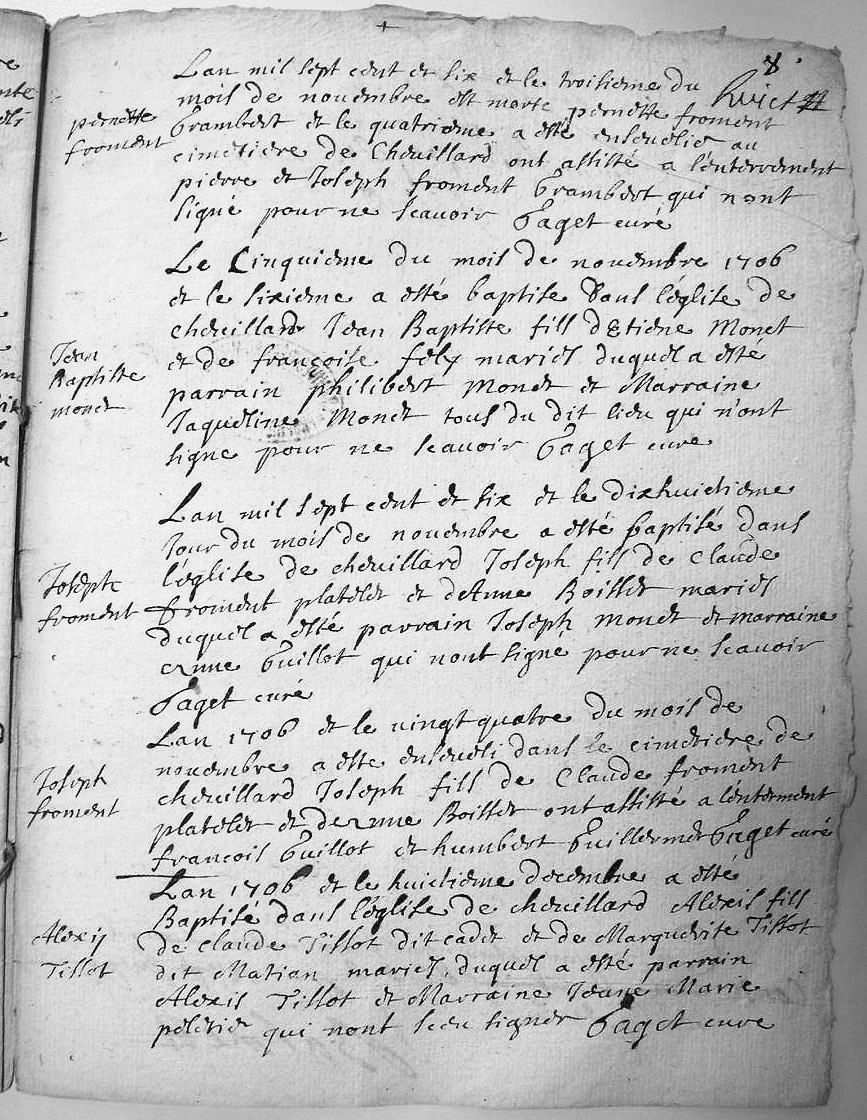 8
huict
Lan mil sept cent et six et le troisieme du
mois de novembre est morte pernette froment
pernette
froment
Grambert et le quatrieme a esté ensevelie au
cimetiere de Chevillard ont assisté a lenterrement
pierre et Joseph froment Grambert qui nont
signé pour ne scavoir Paget curé
Le Cinquieme du mois de novembre 1706
et le sixieme a esté baptise dans leglise de
chevillard Jean Baptiste fill dEtiene Monet
Jean
Baptiste
monet
et de françoise fely mariés duquel a esté
parrain philibert Monet et Marraine
Jaqueline Monet tous du dit lieu qui n'ont
signe pour ne scavoir Paget cure
Lan mil sept cent et six et le dixhuictieme
Jour du mois de novembre a esté baptisé dans
l'eglise de chevillard Joseph fill de Claude
Joseph
froment
froment platelet et deAnne Boisset mariés
duquel a esté parrain Joseph monet et marraine
Anne Guillot qui nont signe pour ne scavoir
Paget curé
Lan 1706 et le vingt quatre du mois de
novembre a este enseveli dans le cimetiere de
Joseph
froment
chevillard Joseph fill de Claude froment
platelet et deAnne Boisset ont assisté a lenterment
francois Guillot et humbert Guillermet Paget curé
Lan 1706 et le huictieme decembre a esté
Baptisé dans l'eglise de chevillard Alexis fill
Alexis
Tissot
de Claude Tissot dit cadet et de Marguerite Tissot
dit Matian mariés duquel a esté parrain
Alexis Tissot et Marraine Jeane Marie
peletier qui nont sceu signer Paget cure